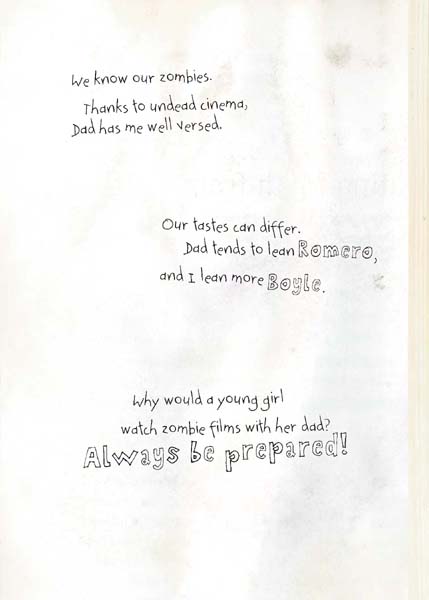 We know our zombies.
Thanks to undead cinema,
Dad has me well versed.
Our tastes can differ.
Dad tends to lean Romero,
and I lean more Boyle.
Why would a young girl
watch zombie films with her dad?
Always be prepared!